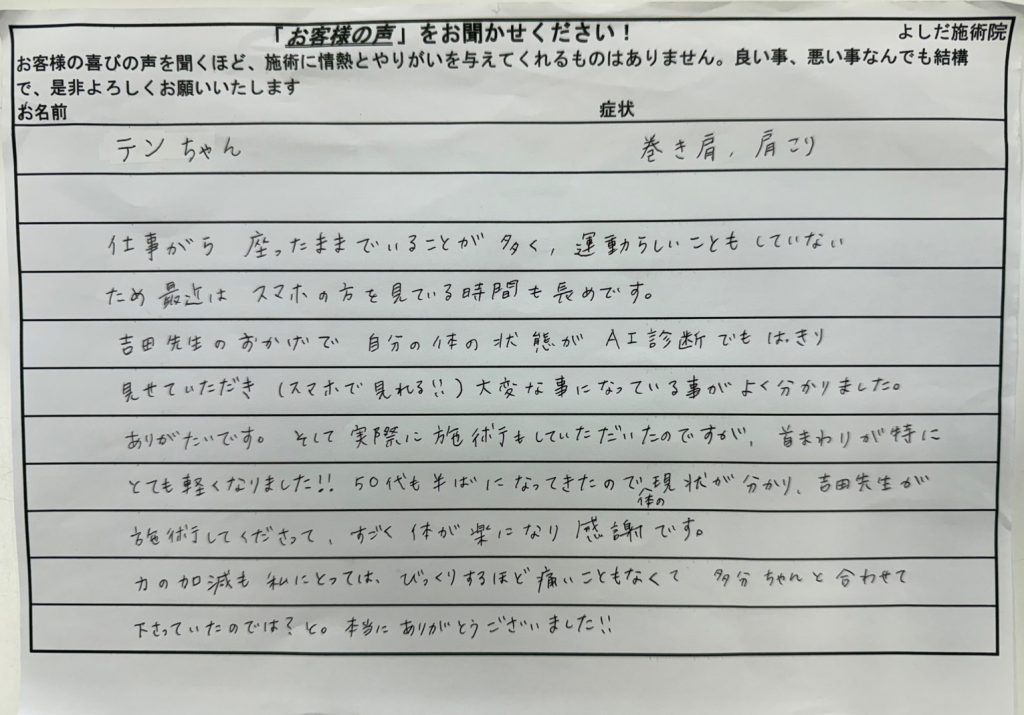 「お客様の声」をお聞かせください！ よしだ施術院
お客様の喜びの声を聞くほど、施術に情熱とやりがいを与えてくれるものはありません。良い事、悪い事なんでも結構
で、是非よろしくお願いいたします
お名前 症状
テンちゃん 巻き肩、肩こり
仕事がら 座ったままでいることが多く、運動らしいこともしていない
ため最近は スマホの方を見ている時間も長めです。
吉田先生のおかげで 自分の体の状態が AI診断でもはっきり
見せていただき (スマホで見れる!!) 大変な事になっている事がよく分かりました。
ありがたいです。 そして実際に施術もしていただいたのですが、首まわりが特に
とても軽くなりました!! 50代も半ばになってきたので体の現状が分かり、吉田先生が
施術してくださって、すごく体が楽になり感謝です。
力の加減も私にとっては、びっくりするほど痛いこともなくて 多分ちゃんと合わせて
下さっていたのでは?と。本当にありがとうございました!!